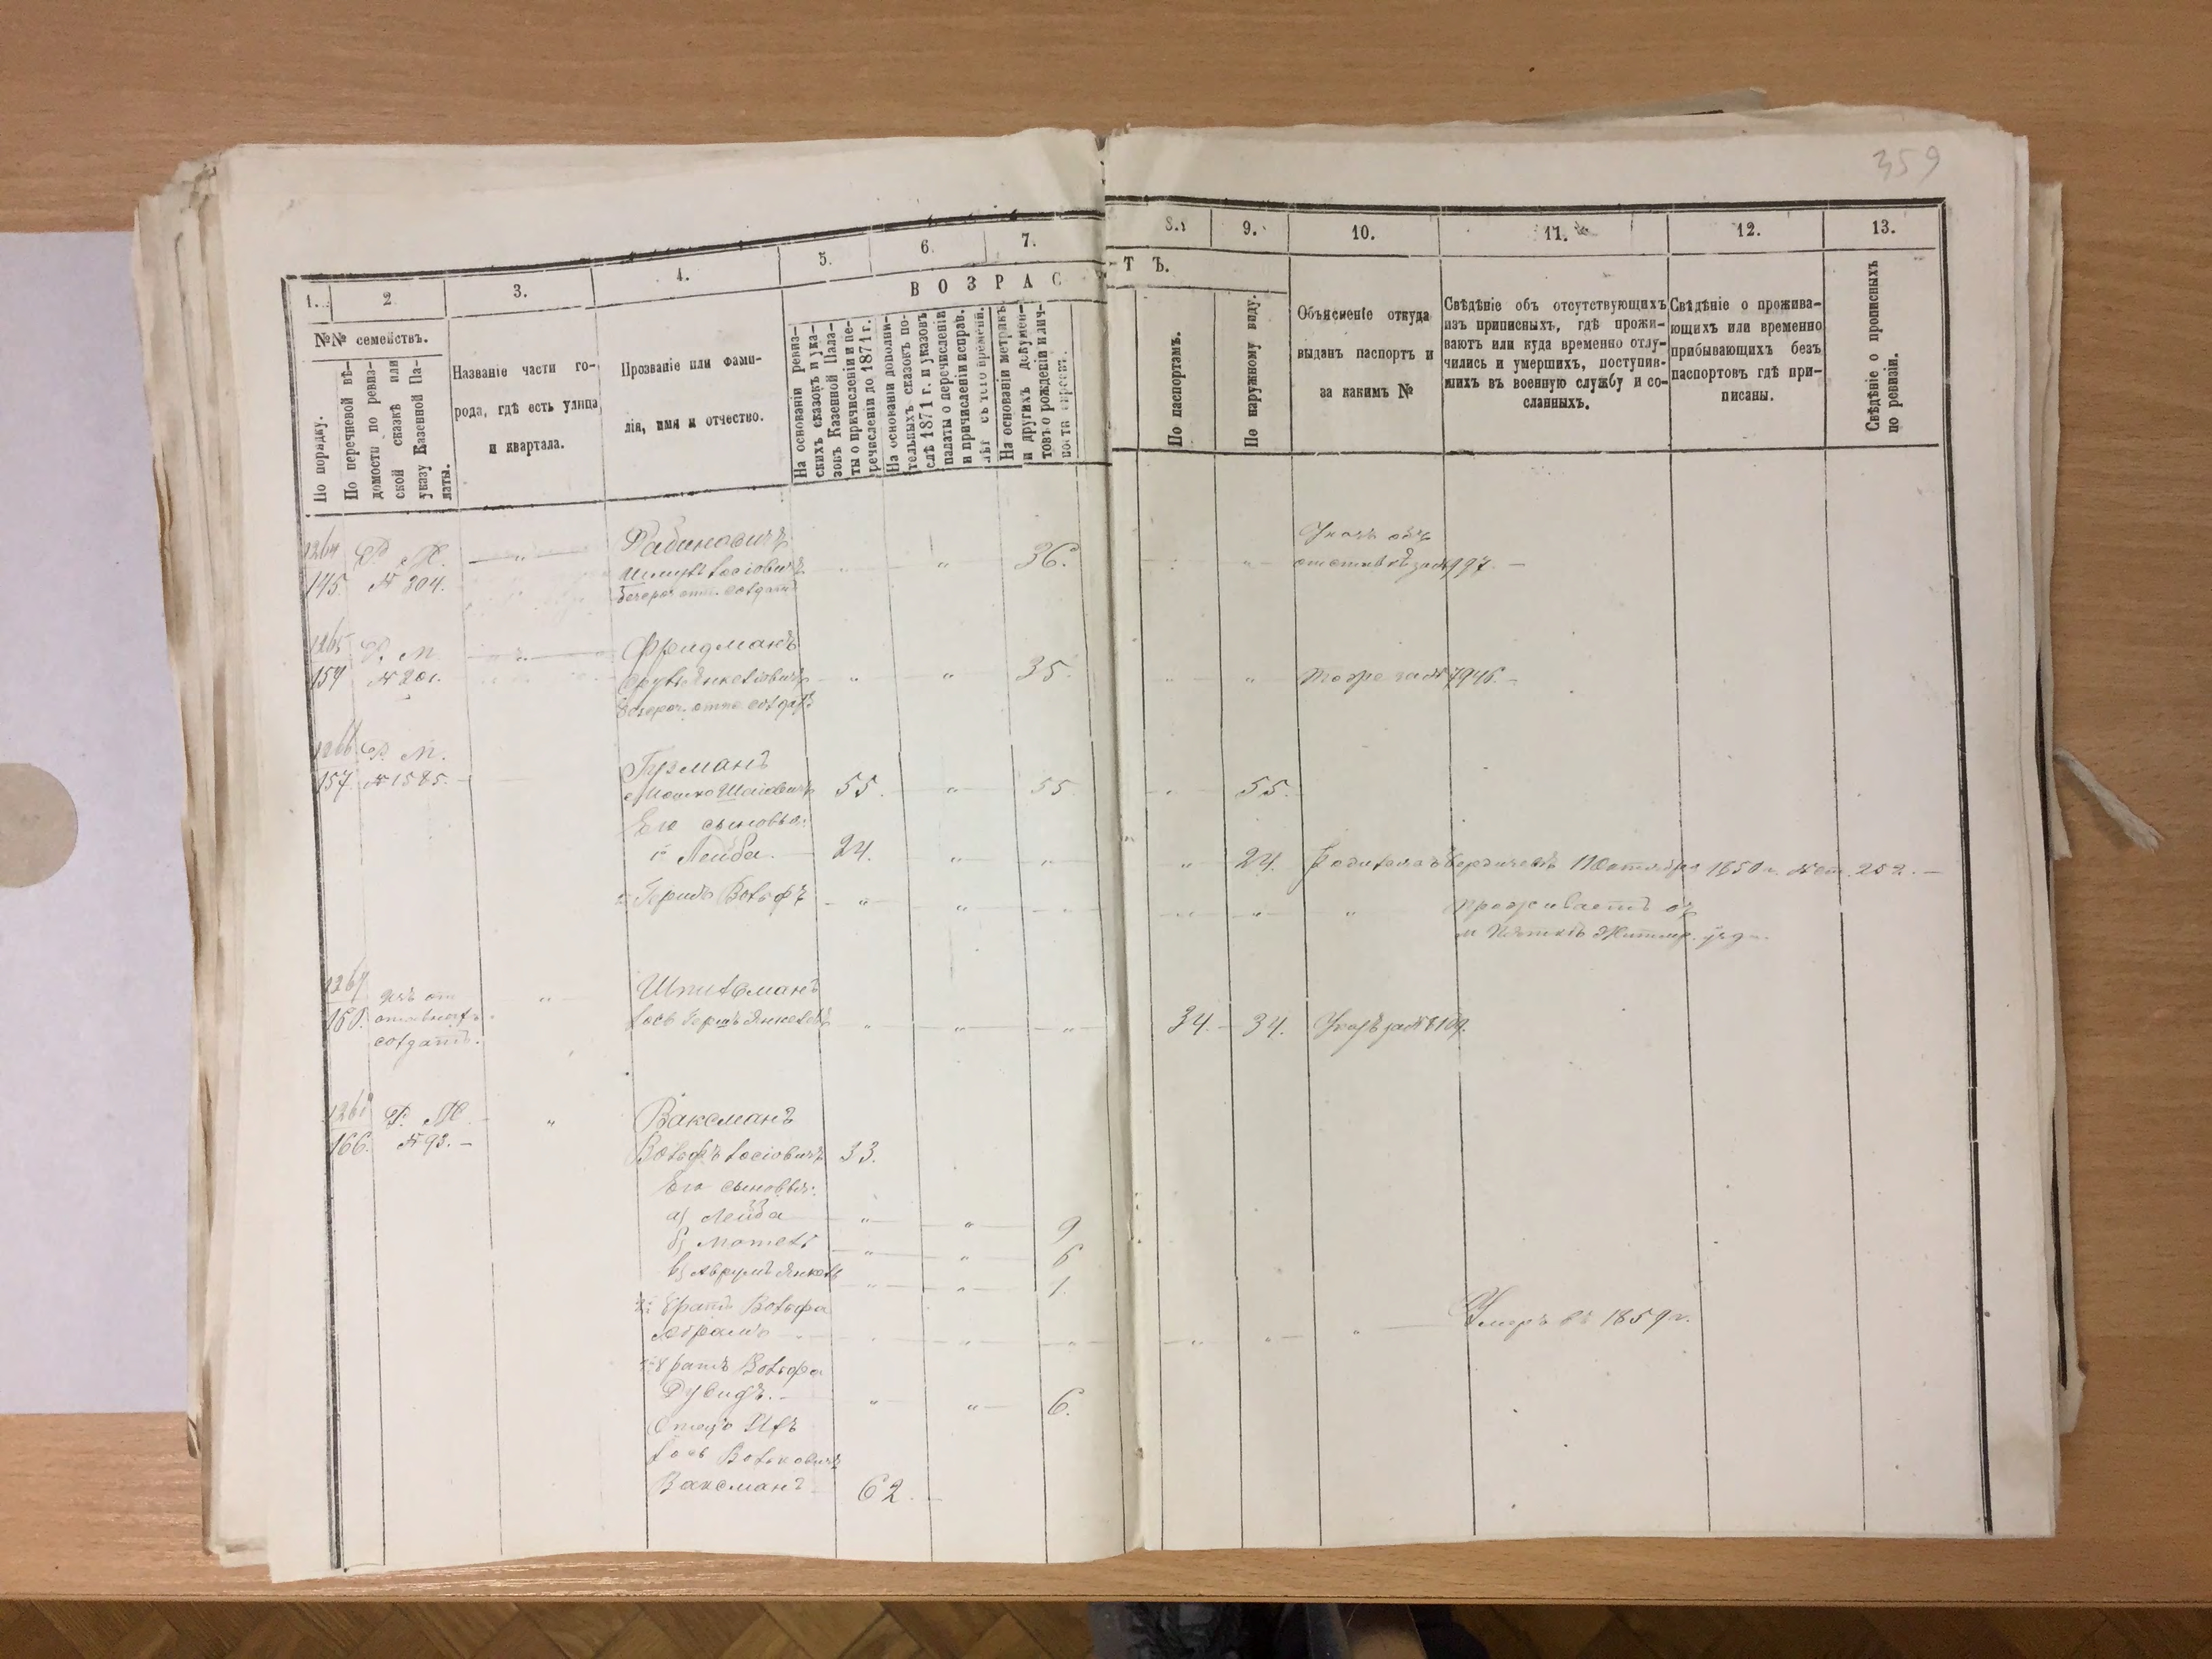 359
1.
2
3.
4.
5.
6.
7.
8.
9.
10.
11.
12.
13.
ВОЗРАС
ТЪ.
№№ семействъ.
По порядку.
По перечневой вѣ-
домости по ревиз-
ской сказкѣ или
указу Казенной Па-
латы.
Названіе части го-
рода, гдѣ есть улица
и квартала.
Прозваніе или фами-
лія, имя и отчество.
На основаніи ревиз-
скихъ сказокъ и ука-
зовъ Казенной Пала-
ты о причисленіи и пе-
речисленіи до 1871 г.
На основаніи дополни-
тельныхъ сказокъ по-
слѣ 1871 г. и указовъ
палаты о перечисленіи
и причисленіи исправ.
лѣт съ того времени.
На основаніи метрикъ
и другихъ докумен-
товъ о рожденіи и лич-
По паспортамъ.
По наружному виду.
Объясненіе откуда
выданъ паспортъ и
за какимъ №
Свѣдѣніе объ отсутствующихъ
изъ приписныхъ, гдѣ прожи-
ваютъ или куда временно отлу-
чились и умершихъ, поступив-
шихъ въ военную службу и со-
сланныхъ.
Свѣдѣніе о прожива-
ющихъ или временно
прибывающихъ безъ
паспортовъ гдѣ при-
писаны.
Свѣдѣніе о прописныхъ
по ревизіи.
1264 Р. М. Рабиновичъ Указъ объ
145. № 204. Іосіовичъ 36. отставкѣ за № 997. —
1265 Р. М. Фридманъ
154 № 201. Янкелiовичъ 35. Тоже за № 7946. —
1266 Р. М. Гузманъ
157. № 1585. — Мошко Шаіовичъ 55. 55 55.
Его сыновья:
1й Лейба. 24. 24. 1850 г. № 252. —
2й Гершъ Вольфъ проживаетъ въ
м. Житомир. уѣзд.
1267 Шпильманъ
160. Іось Гершъ Янкелевъ 34. — 34. Указъ за № 8109.
солдатъ.
1268 Р. М. Ваксманъ
166. № 93. — Вольфъ Іосіовичъ 33.
Его сыновья:
а) Лейба 9
б) Мотель 6
в) Аврумъ Янкель 1.
2й братъ Вольфа
Абрамъ Умеръ въ 1859 г.
братъ Вольфа
Дувидъ. 6.
Отецъ ихъ
Іось Вольковичъ
Ваксманъ 62. —